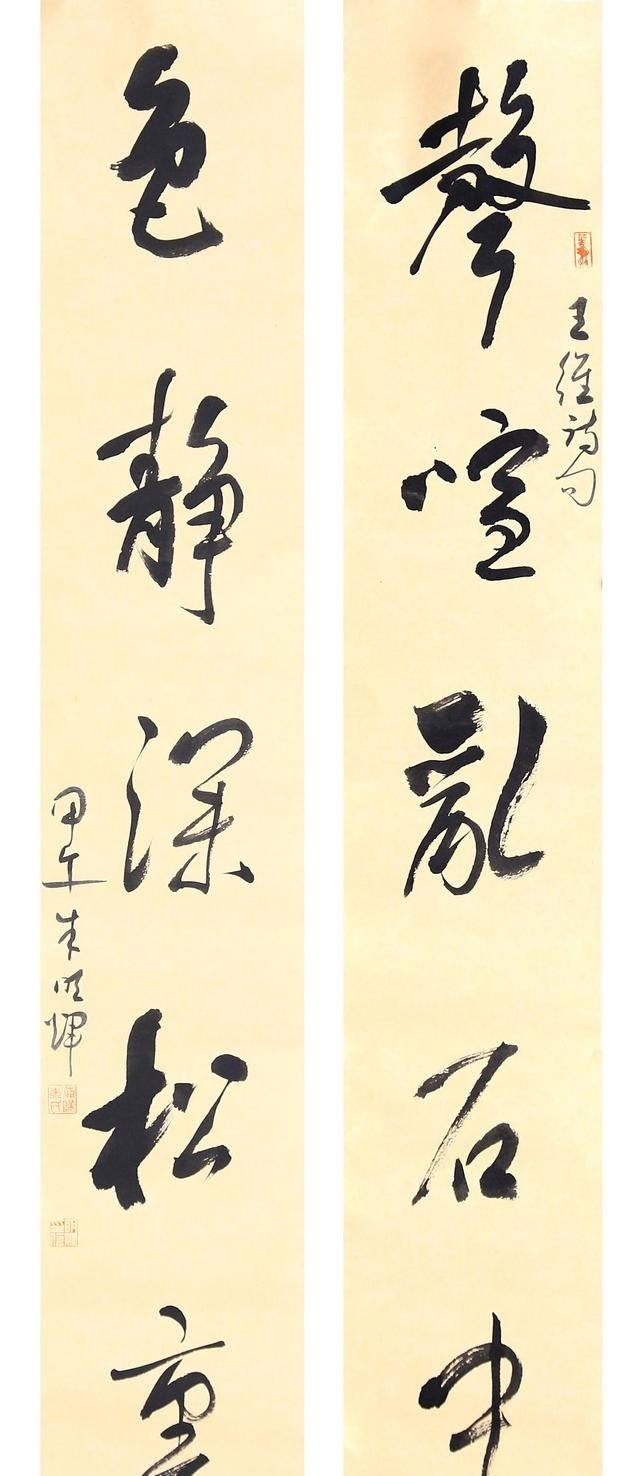 王維詩句
聲喧亂石中
色靜深松裏
甲午朱明輝